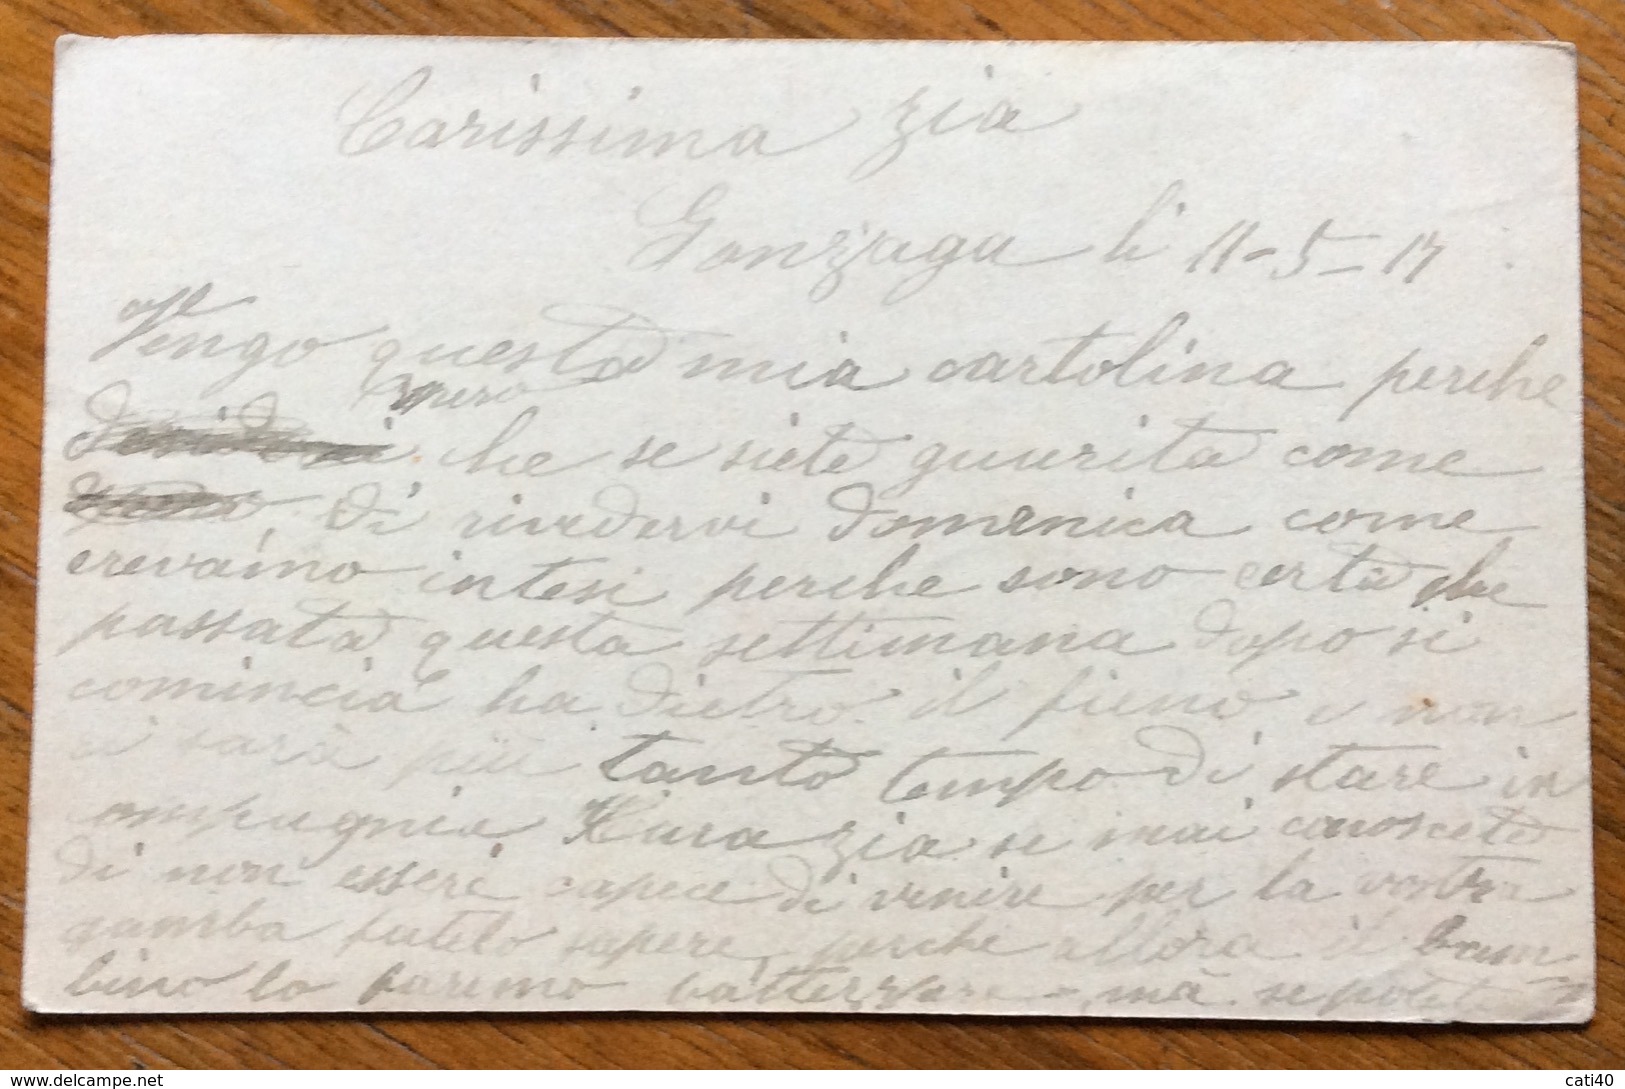 Carissima zia
Gonzaga li 11-5-17
Vengo questa mia cartolina perche
spero
che se siete guurita come
di rivedervi domenica come
erevamo intesi perche sono certa che
passata questa settimana dopo si
comincia ha dietro il fieno e non
ci sarà più tanto tempo di stare in
ompagnia Kara zia se mai conoscete
di non essere capece di venire per la vostra
gamba fatelo sapere perche allora il bam-
bino lo faremo battezzare - ma se potete
cati40